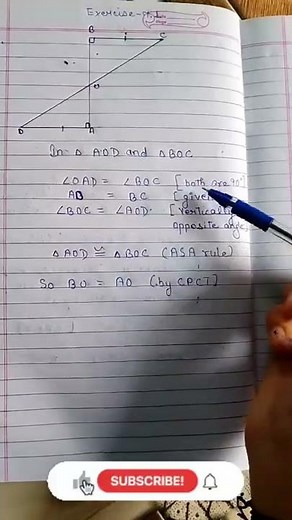 Exercise-
B
C
O
D
A
In Δ AOD and Δ BOC
∠OAD = ∠BOC [both are 90°
AD = BC [given
∠BOC = ∠AOD [vertically
opposite angle
Δ AOD ≅ Δ BOC (ASA rule)
So BO = AO (by CPCT)
SUBSCRIBE!